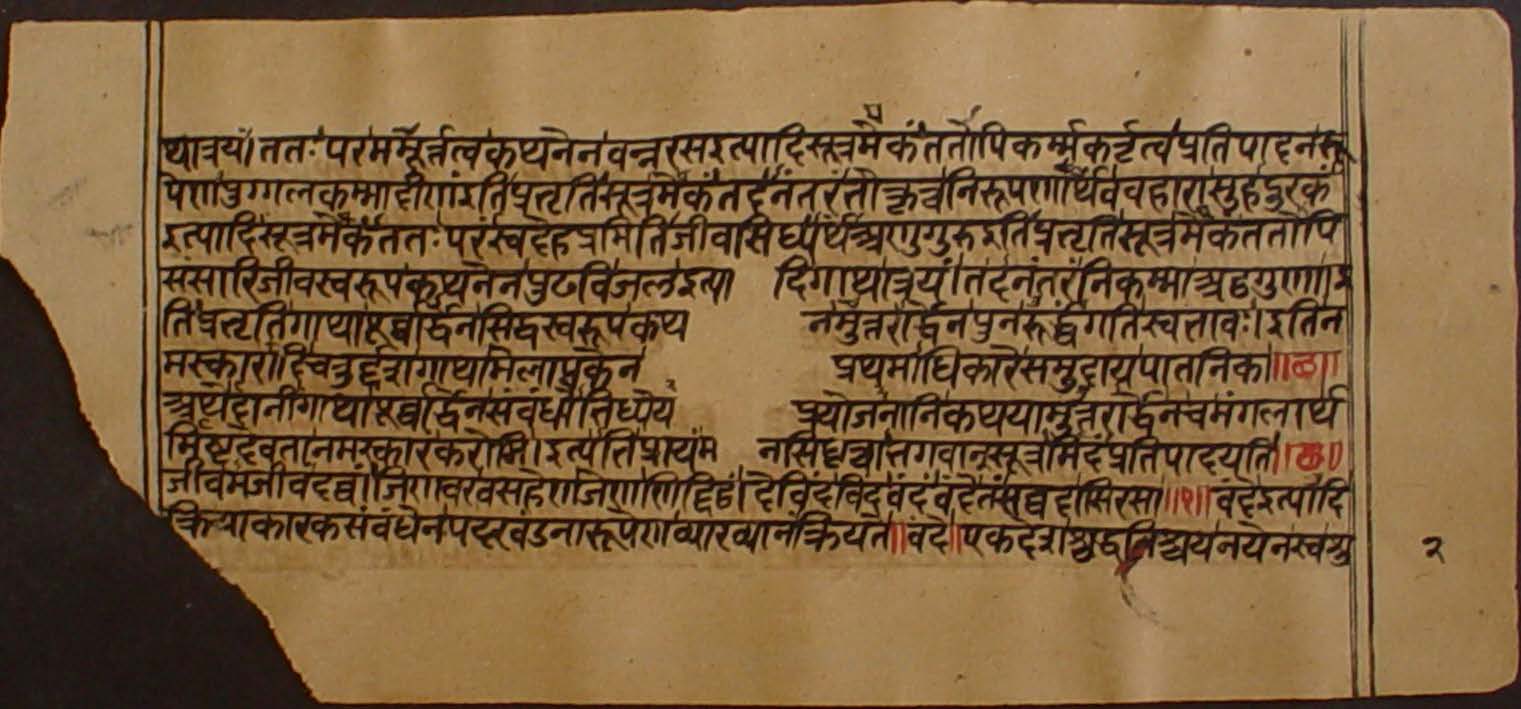 थात्रयं। ततः परममूर्त्तत्वकथनेन वन्नरसइत्यादिसूत्रमेकं ततोपि कर्म्मकर्तृत्वप्रतिपादनरू
पेण पुग्गलकम्मादीणं इति प्रभृतिसूत्रमेकं तदनंतरं भोक्तृत्वनिरूपणार्थं ववहारासुहदुरकं
इत्यादिसूत्रमेकं ततः परं स्वदेहप्रमितिजीवसिध्यर्थं अणुगुरु इति प्रभृतिसूत्रमेकं ततोपि
संसारिजीवस्वरूपकथनेन पुढविजलइत्या दिगाथात्रयं। तदनंतरं निकम्मा अठगुणा। इ
ति प्रभृतिगाथापूर्वार्द्धेन सिद्धस्वरूपकथ नमुत्तरार्द्धेन पुनरूर्द्ध्वगतिस्वभावः। इति न
मस्कारादिचतुर्द्दशगाथामेलापकेन प्रथमाधिकारे समुदायपातनिका॥छ॥
अथेदानीं गाथापूर्वार्द्धेन संबंधाभिधेय प्रयोजनानि कथयाम्युत्तरार्द्धेन च मंगलार्थ
मिष्टदेवतानमस्कारं करोमि। इत्यभिप्रायं म नसि धृत्वा भगवान् सूत्रमिदं प्रतिपादयति।छ॥
जीवमजीवं दव्वं। जिणवरवसहेण जेण णिद्दिठं। देविंदविंदवंदं वंदे तं सव्वदा सिरसा॥१॥ वंदेइत्यादि
क्रियाकारकसंबंधेन पदखंडनारूपेण व्याख्यानं क्रियते॥वंदे॥एकदेशशुद्धनिश्चयनयेन स्वशु
२